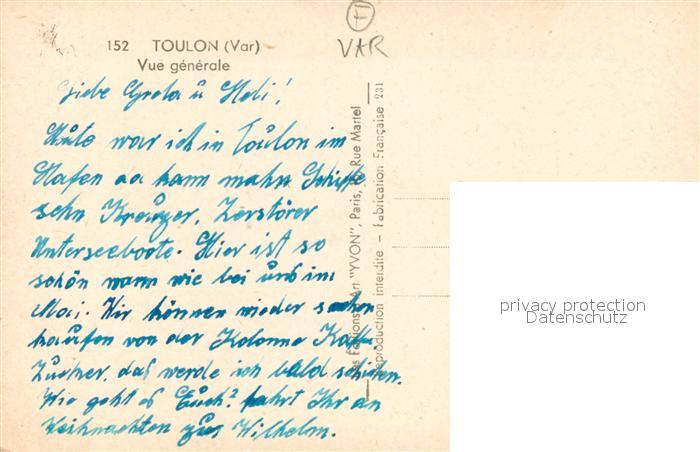 152 TOULON (Var)
Vue générale
FI
VAR
Liebe Greta u Hedi!
Heute war ich in Toulon im
Hafen da kann mahn Schiffe
sehn Kreuzer, Zerstörer
Unterseeboote. Hier ist so
schön warm wie bei uns im
Mai. Wir können wieder sachen
kaufen von der Kolonne Kaffe
Zucker, das werde ich bald schiken.
Wie geht es Euch? fahrt Ihr an
Weihnachten zur Wilhelm.
Les Editions d'Art "YVON", Paris, Rue Martel
Reproduction interdite – Fabrication Française 231
privacy protection
Datenschutz